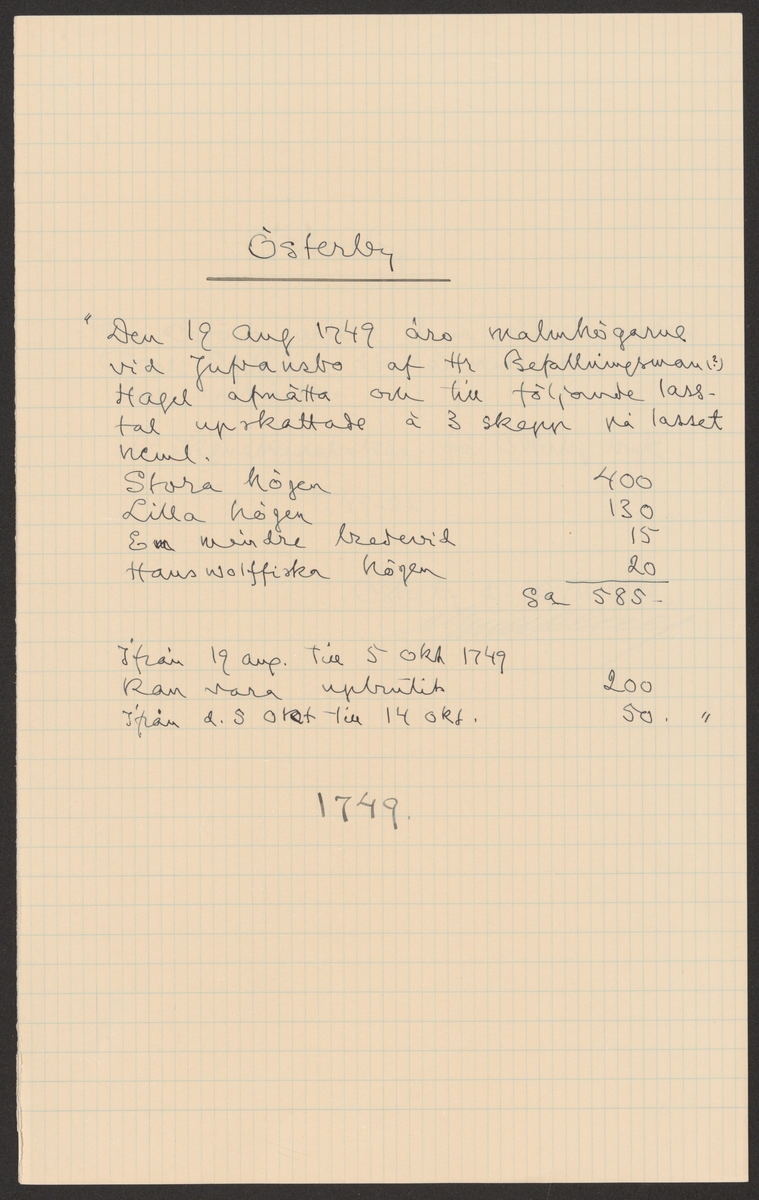 Österby
"Den 19 Aug 1749 äro malmhögarne
vid Jufransbo af Hr Befallningsman(?)
Hagel afmätta och till följande lass-
tal upskattade à 3 skepp på lasset
neml.
Stora högen 400
Lilla högen 130
En mindre bredevid 15
Hans wolffiska högen 20
Sa 585-
Ifrån 19 aug. till 5 okt 1749
kan vara upbrutit 200
Ifrån d. 5 okt till 14 okt. 50. "
1749.